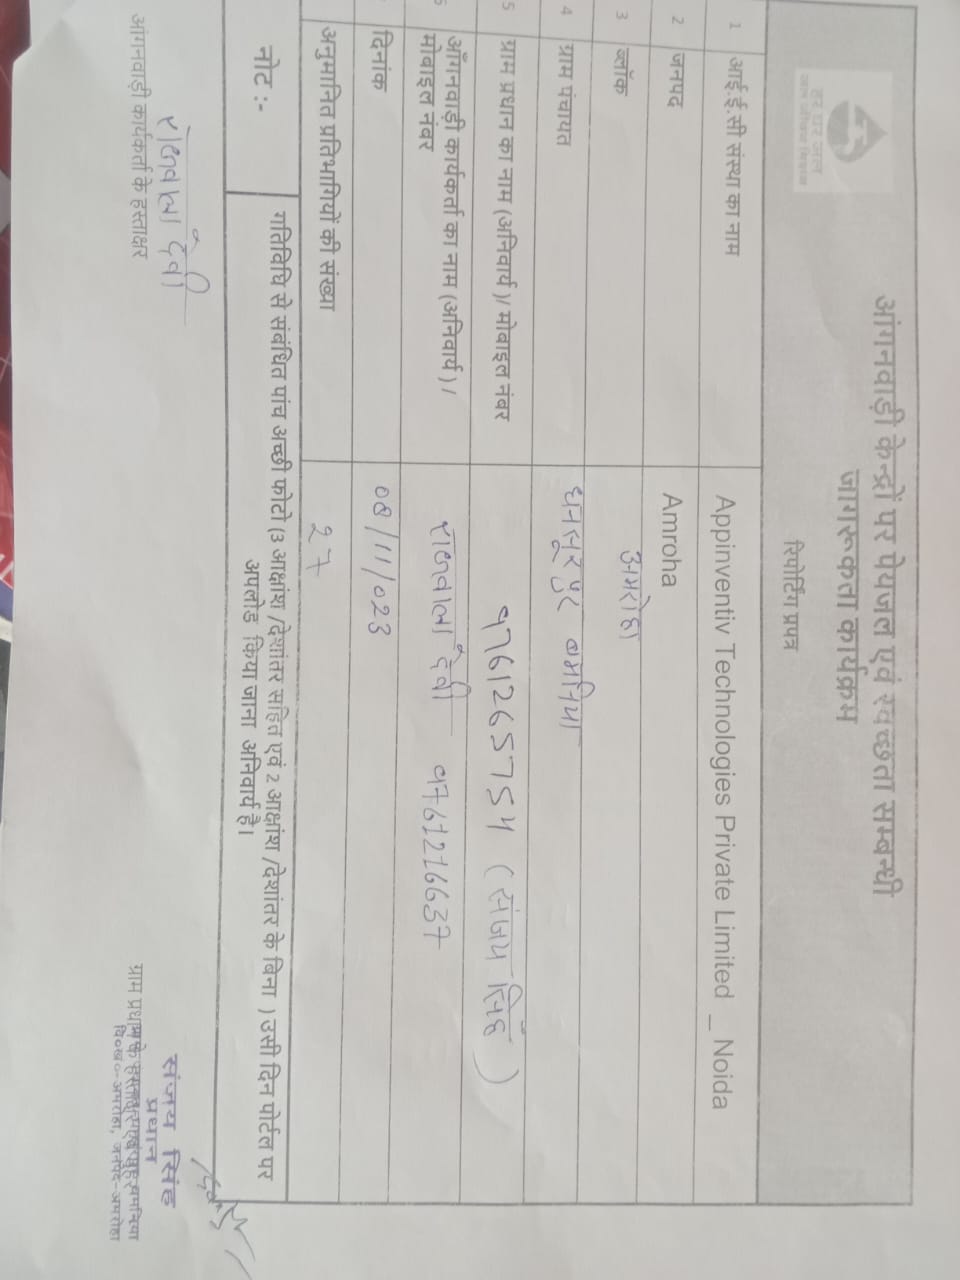 हर घर जल
जल जीवन मिशन
आंगनवाड़ी केन्द्रों पर पेयजल एवं स्वच्छता सम्बन्धी
जागरूकता कार्यक्रम
रिपोर्टिंग प्रपत्र
1 आई.ई.सी संस्था का नाम Appinventiv Technologies Private Limited _ Noida
2 जनपद Amroha
3 ब्लॉक अमरोहा
4 ग्राम पंचायत घनसूरपुर बमनिया
5 ग्राम प्रधान का नाम (अनिवार्य )/ मोबाइल नंबर ९761265754 (संजय सिंह)
6 ऑगनवाड़ी कार्यकर्ता का नाम (अनिवार्य ) /
मोबाइल नंबर राजबाला देवी ९761216637
दिनांक 08/11/023
अनुमानित प्रतिभागियों की संख्या २7
नोट :- गतिविधि से संबंधित पांच अच्छी फोटो (3 आक्षांश /देशांतर सहित एवं 2 आक्षांश /देशांतर के बिना ) उसी दिन पोर्टल पर
अपलोड किया जाना अनिवार्य है।
राजबाला देवी
आंगनवाड़ी कार्यकर्ता के हस्ताक्षर
संजय सिंह
प्रधान
ग्राम प्रधान के हस्ताक्षर एवं मुहर
वि०ख०-अमरोहा, जनपद-अमरोहा